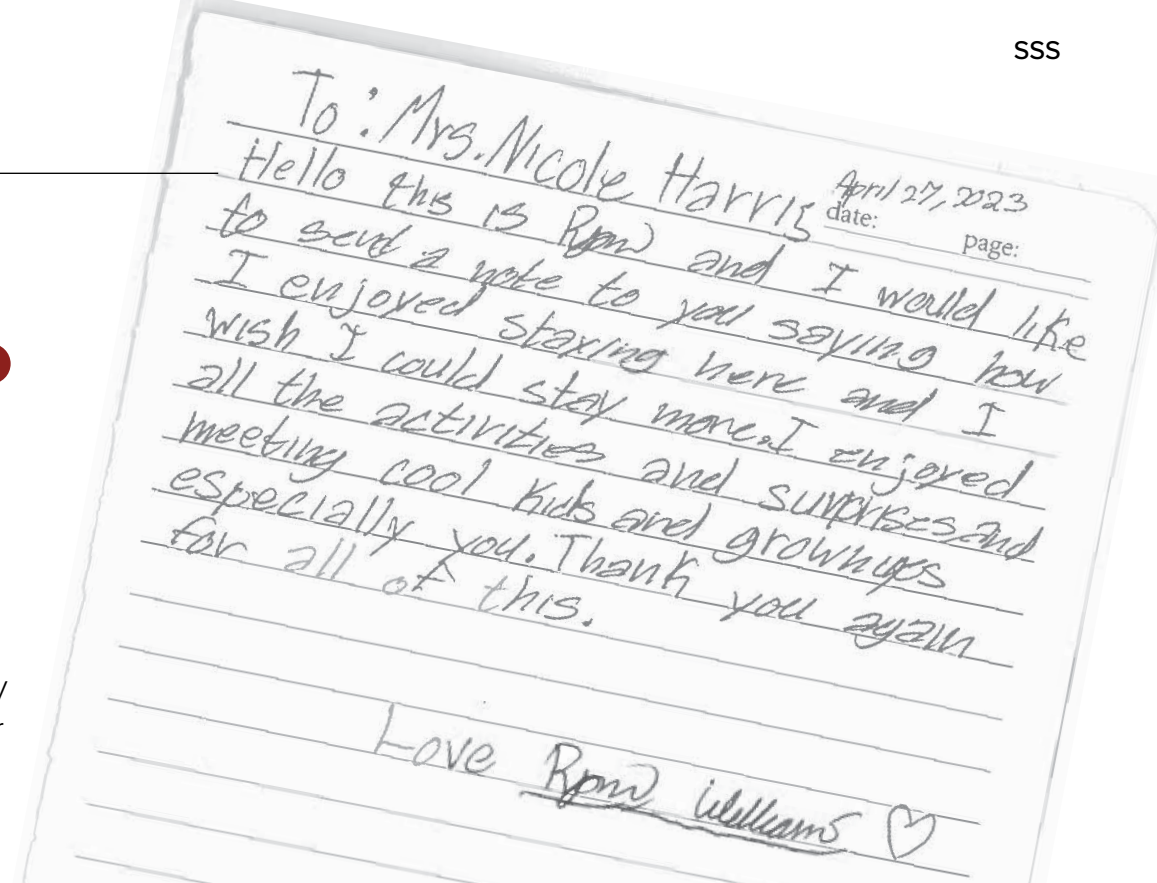 SSS
To: Mrs. Nicole Harris
April 27, 2023
date:
page:
Hello this is and I would like
to send a note to you saying how
I enjoyed staying here and I
wish I could stay more. I enjoyed
all the activities and surprises and
meeting cool kids and grownups
especially you. Thank you again
for all of this.
Love Williams